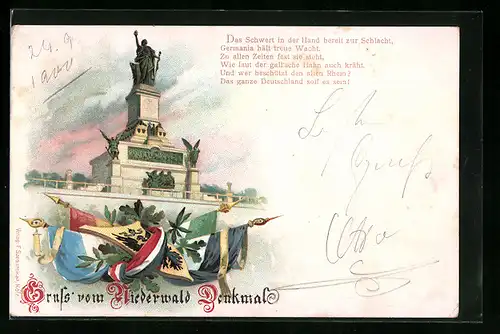 24.9
1900
Das Schwert in der Hand bereit zur Schlacht,
Germania hält treue Wacht.
Zu allen Zeiten fest sie steht,
Wie laut der gall'sche Hahn auch kräht.
Und wer beschützt den alten Rhein?
Das ganze Deutschland soll es sein!
Gruß
Otto
Gruss vom Niederwald Denkmal